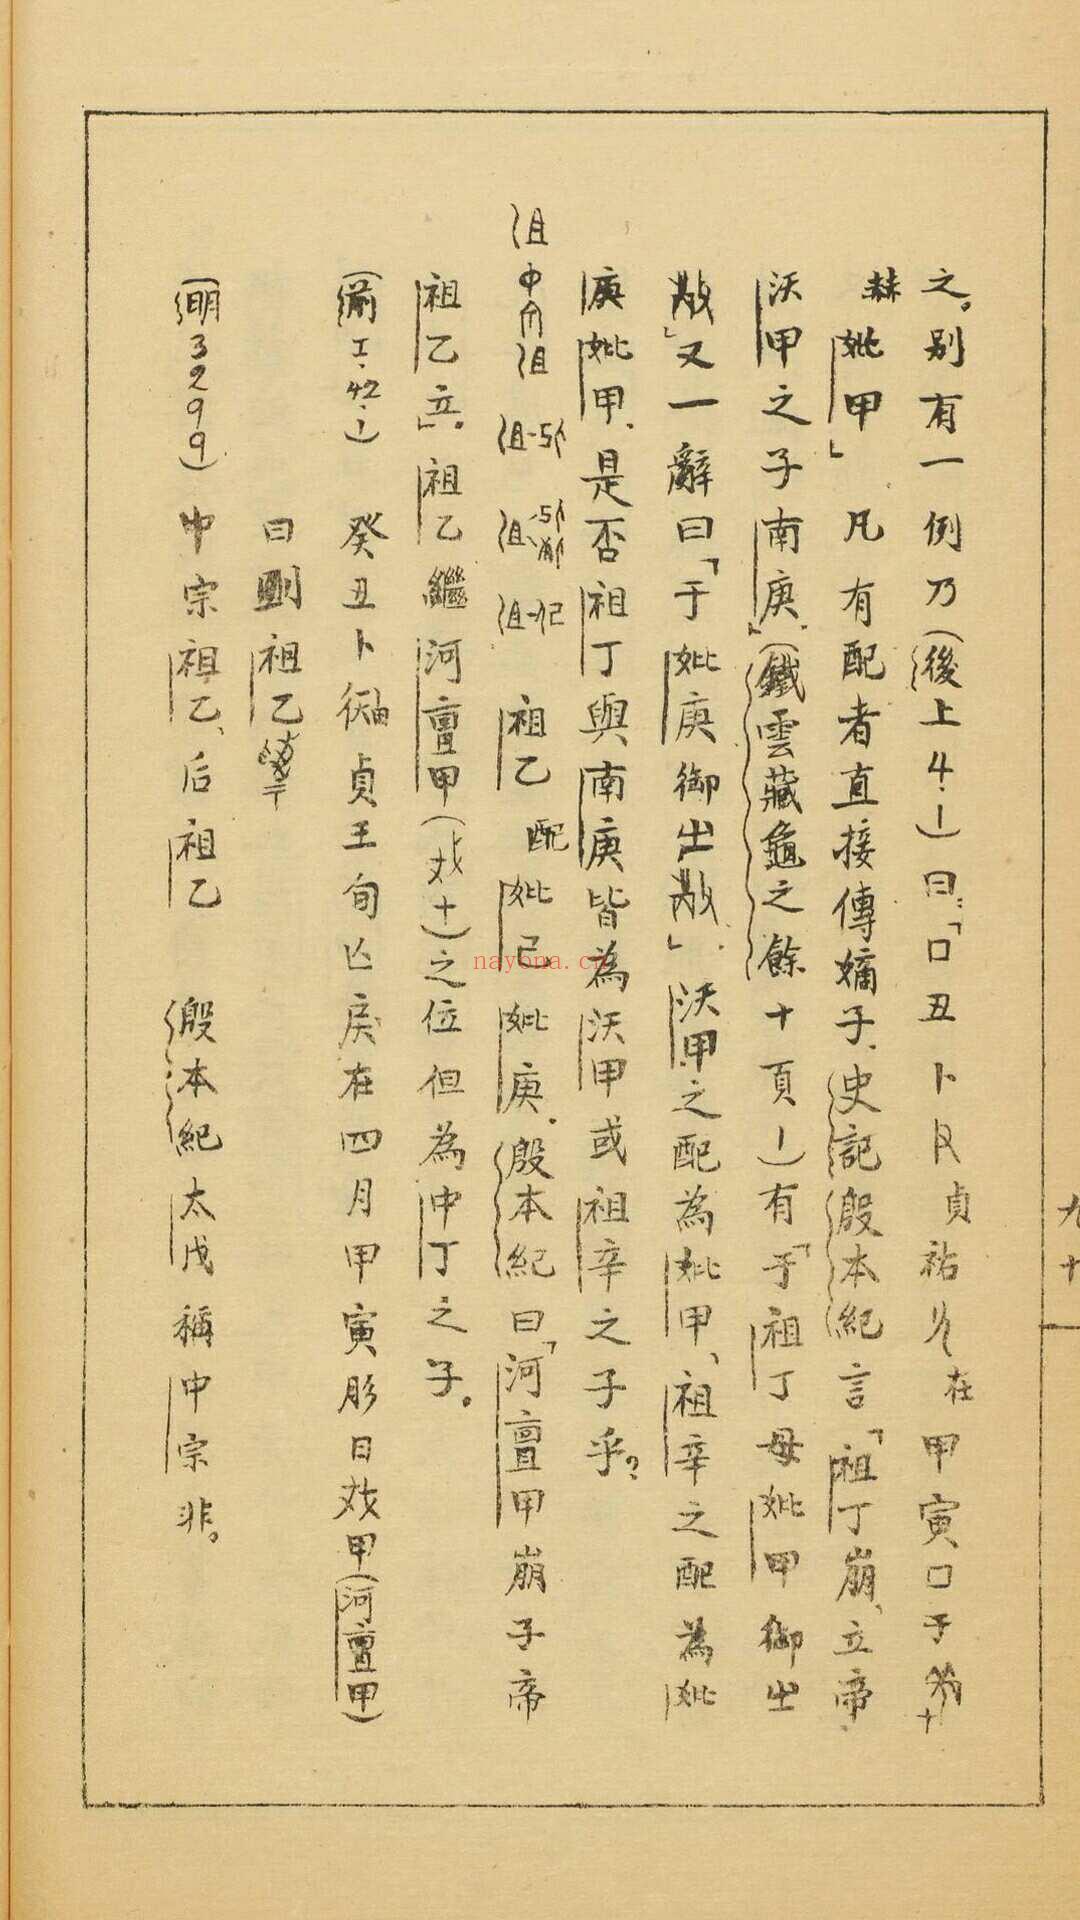 之。別有一例乃(後上4.1)曰:「口丑卜貞祐在甲寅口于
赫妣甲」凡有配者直接傳嫡子、史記殷本紀言「祖丁崩、立帝
沃甲之子南庚。」(鐵雲藏龜之餘十頁1)有「于祖丁母妣甲御㞢
㪔」又一辭曰「于妣庚御㞢㪔」.沃甲之配為妣甲、祖辛之配為妣
庚妣甲、是否祖丁與南庚皆為沃甲或祖辛之子乎?
祖乙 配妣己 妣庚.殷本紀曰「河亶甲崩子帝
祖乙立」。祖乙繼河亶甲(戔十)之位但為中丁之子。
(前I.42.1) 癸丑卜貞王旬亡戾在四月甲寅肜日戔甲(河亶甲)
曰劓祖乙
(明3299) 中宗祖乙、后祖乙 殷本紀太戊稱中宗非。
九十
nayona.cn